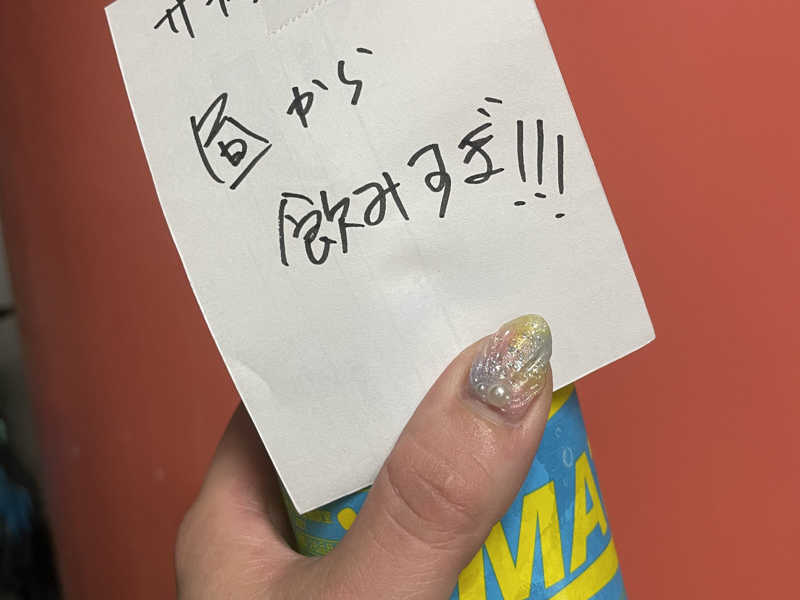 昼から
飲みすぎ!!!
MA